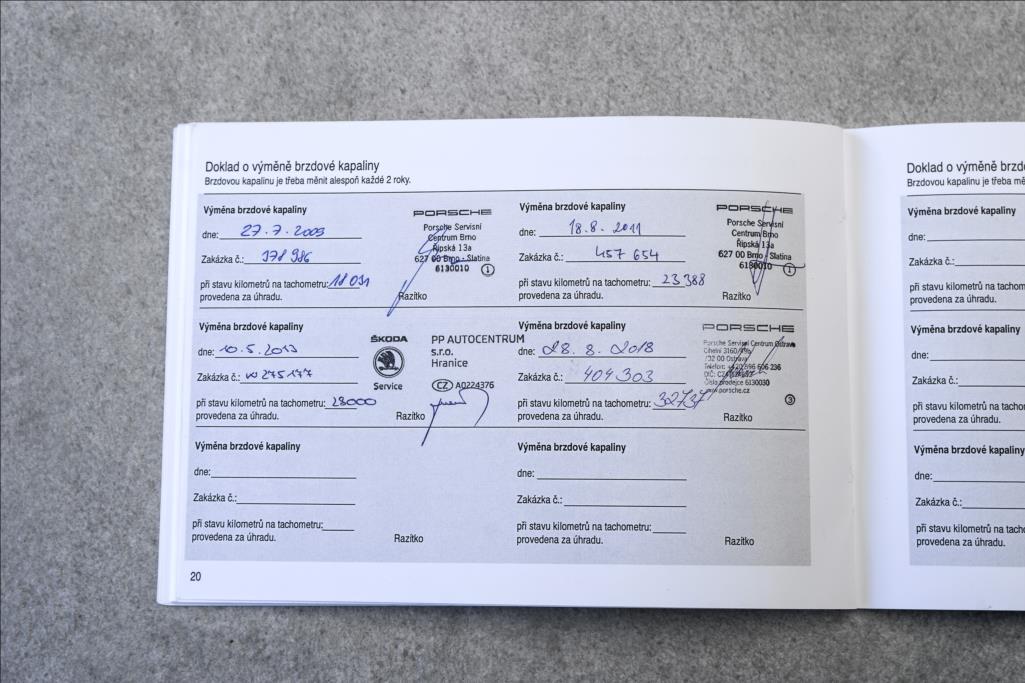 Doklad o výměně brzdové kapaliny
Brzdovou kapalinu je třeba měnit alespoň každé 2 roky.
Výměna brzdové kapaliny
dne: 27.7.2009
Zakázka č.: 178 986
při stavu kilometrů na tachometru: 18 091
provedena za úhradu.
Razítko
PORSCHE
Porsche Servisní
Centrum Brno
Řipská 13a
627 00 Brno - Slatina
6130010 1
Výměna brzdové kapaliny
dne: 18.8. 2011
Zakázka č.: 457 654
při stavu kilometrů na tachometru: 23 388
provedena za úhradu.
Razítko
PORSCHE
Porsche Servisní
Centrum Brno
Řipská 13a
627 00 Brno - Slatina
6130010 1
Výměna brzdové kapaliny
dne: 10.5.2013
Zakázka č.:
při stavu kilometrů na tachometru: 28000
provedena za úhradu.
Razítko
ŠKODA
Service
PP AUTOCENTRUM
s.r.o.
Hranice
CZ A0224376
Výměna brzdové kapaliny
dne: 28. 8. 2018
Zakázka č.: 404 303
při stavu kilometrů na tachometru: 32737
provedena za úhradu.
Razítko
PORSCHE
Porsche Servisní Centrum Ostrava
Cihelní 3160/49b
702 00 Ostrava
Číslo prodejce 6130030
www.porsche.cz
3
Výměna brzdové kapaliny
dne:
Zakázka č.:
při stavu kilometrů na tachometru:
provedena za úhradu.
Razítko
Výměna brzdové kapaliny
dne:
Zakázka č.:
při stavu kilometrů na tachometru:
provedena za úhradu.
Razítko
20
Doklad o výměně brzdo
Brzdovou kapalinu je třeba mě
Výměna brzdové kapaliny
dne:
Zakázka č.:
při stavu kilometrů na tacho
provedena za úhradu.
Výměna brzdové kapaliny
dne:
Zakázka č.:
při stavu kilometrů na tacho
provedena za úhradu.
Výměna brzdové kapaliny
dne:
Zakázka č.:
při stavu kilometrů na tacho
provedena za úhradu.